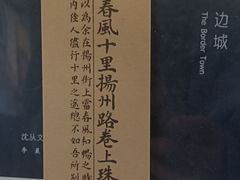 春風十里揚州路卷上珠
以為余在揚州街上當春風和暢之時
內陰人盧行十里之遙總不如吾所別
边城
The Border Town
沈从文